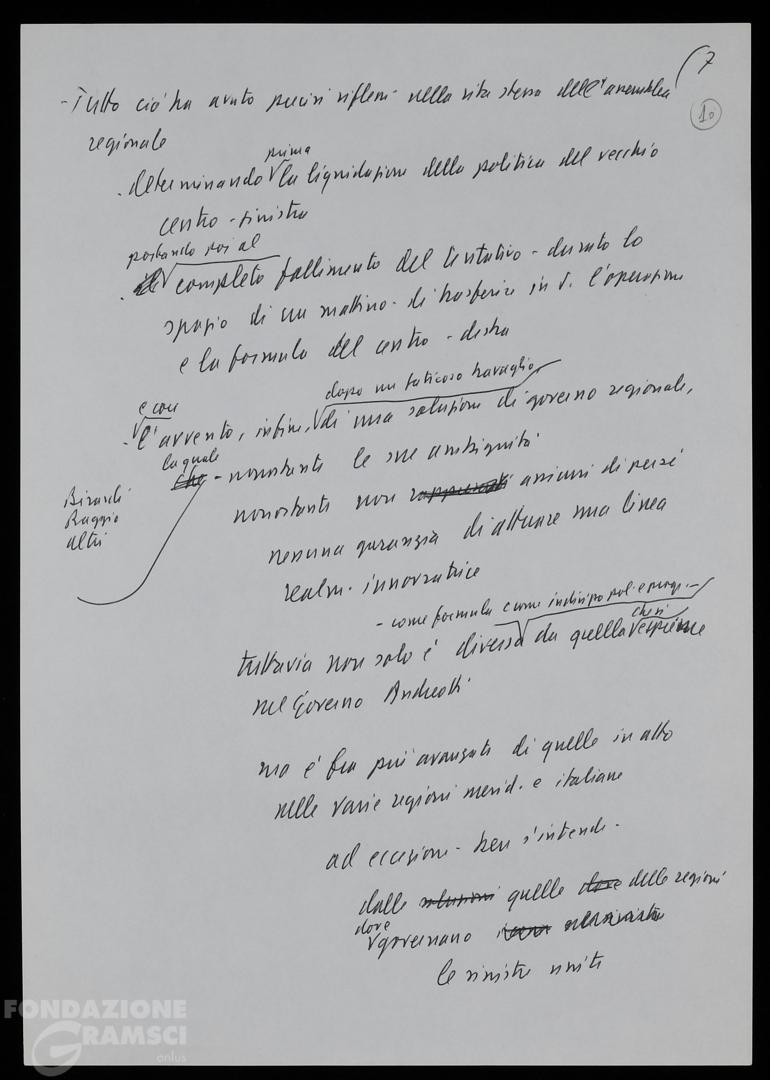 (7
10
- Tutto ciò ha avuto precisi riflessi nella vita stessa dell'assemblea
regionale
prima
. determinando la liquidazione della politica del vecchio
centro-sinistra
portando poi al
. il completo fallimento del tentativo - durato lo
spazio di un mattino - di trasferire in S. l'operazione
e la formula del centro-destra
e con dopo un faticoso travaglio
- l'avvento, infine, di una soluzione di governo regionale,
la quale
che - nonostante le sue ambiguità
Birardi
Raggio
altri
nonostante non rappresenti assicuri di per sé
nessuna garanzia di attuare una linea
realm. innovatrice
- come formula e come indirizzo pol. e progr. -
che si
tuttavia non solo è diversa da quella esprime
nel Governo Andreotti
ma è fra più avanzate di quelle in atto
nelle varie regioni merid. e italiane
ad eccezione - ben s'intende -
dalle soluzioni quelle dove delle regioni
dove
governano
le sinistre unite
FONDAZIONE
GRAMSCI
onlus